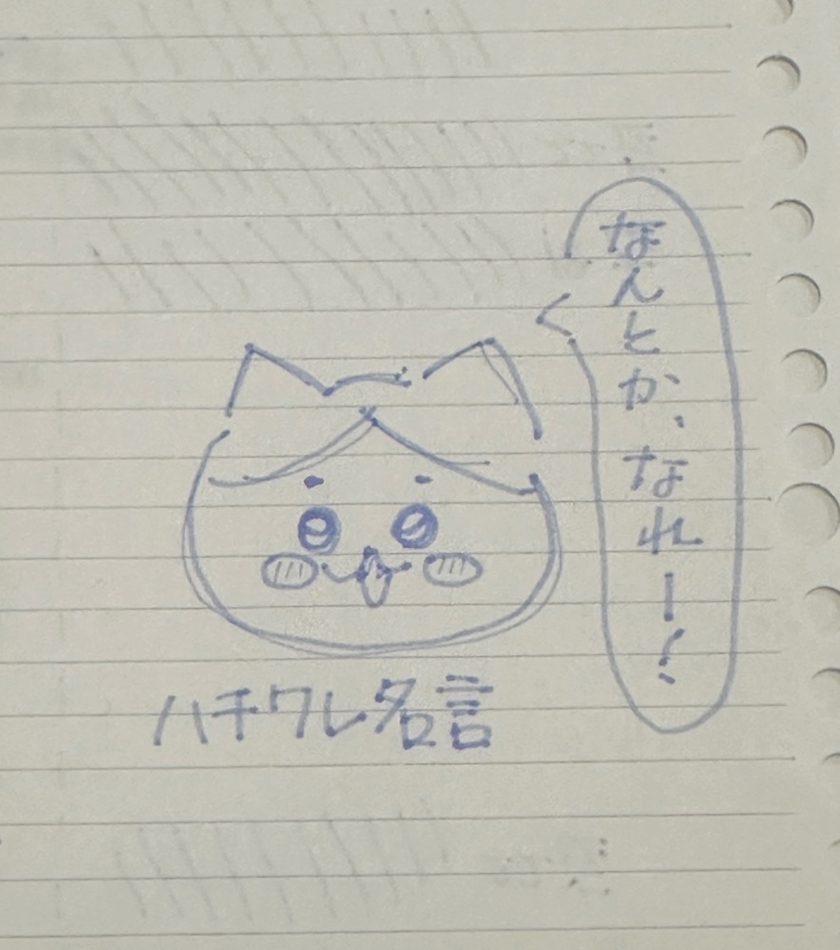 なんとか、なれーッ!
ハチワレ名言